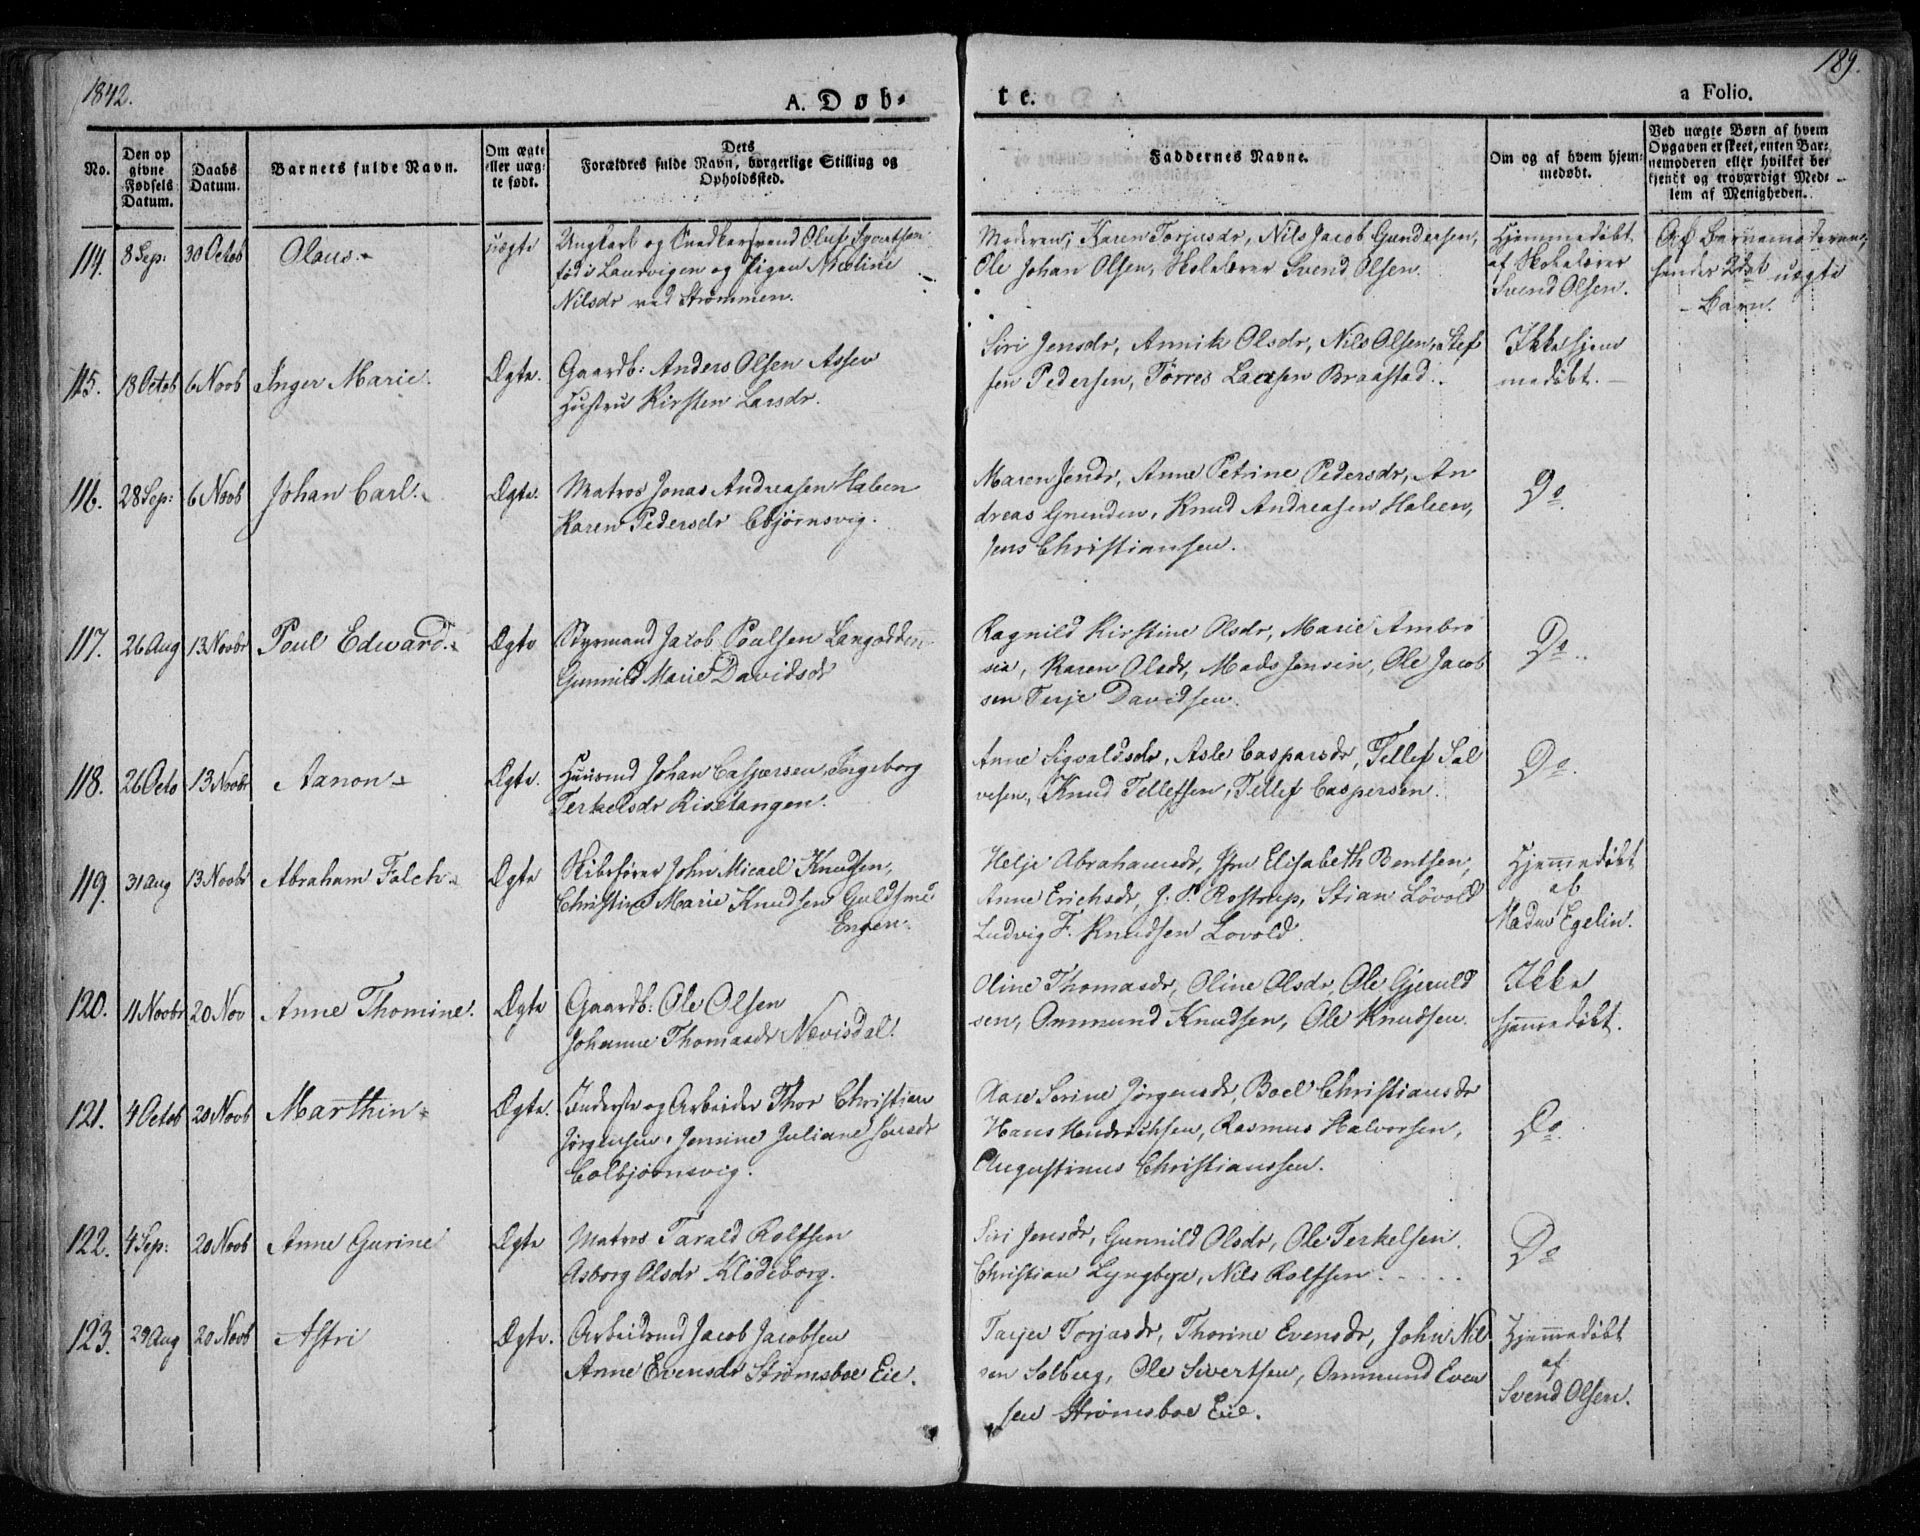 1842.
189.
A. Døb-
te.
a Folio.
No.
Den opgivne Fødsels Datum.
Daabs Datum.
Barnets fulde Navn.
Om ægte eller uægte født.
Dets
Forældres fulde Navn, borgerlige Stilling og
Opholdssted.
Faddernes Navne.
Om og af hvem hjemmedøbt.
Ved uægte Børn af hvem
Opgaven er skeet, enten Barnemoderen
eller hvilket bekjendt
og troværdigt Medlem
af Menigheden.
114. 8 Sep: 30 Octob Olaus. uægte Ungkarl og Snedkersvend Oluf Syvertsen
fød i Laurvigen og Pigen Nicoline
Nilsdr ved Strømmen.
Moderen, Karen Torjusdr, Nils Jacob Gundersen,
Ole Johan Olsen, Skolelærer Svend Olsen.
Hjemmedøbt
af Skolelærer
Svend Olsen.
Af Barnemoderen,
hendes 2det uægte
Barn.
115. 18 Octob 6 Novb Inger Marie. Ægte. Gaardb: Anders Olsen Assev
Hustru Kirsten Larsdr.
Siri Jensdr, Annik Olsdr, Nils Olsen, Stef
fen Pedersen, Torres Larsen Braastad.
Ikke hjem
medøbt.
116. 28 Sep: 6 Novb Johan Carl. Ægte. Matros Jonas Andreasen Haleen
Karen Pedersdr Cbjørnsvig.
Maren Jensdr, Anne Petrine Pedersdr, An
dreas Grunden, Knud Andreasen Haleen,
Jens Christiansen.
Do
117. 26 Aug 13 Novbr Poul Edward. Ægte Styrmand Jacob Poulsen Langodden
Gunnild Marie Davidsdr
Ragnild Kirstine Olsdr, Marie Ambro
sia, Karen Olsdr, Mads Jensen, Ole Jacob
sen Terje Davidsen.
Do
118. 26 Octo 13 Novbr Aanon Ægte. Huusmd Johan Caspersen, Ingeborg
Terkelsdr Risetangen.
Anne Sigvaldsdr, Asle Caspersdr, Tellef Sal
vesen, Knud Tellefsen, Tellef Caspersen.
Do.
119. 31 Aug 13 Novbr Abraham Falch Ægte Skibsfører John Micael Knudsen,
Christine Marie Knudsen Guldsme
Engen.
Helje Abrahamsdr, Elisabeth Bentsen,
Anne Erichsdr, J. P. Rostrup, Stian Lövold
Ludvig F. Knudsen Lovold.
Hjemmedøbt
af
Madm Egelin.
120. 11 Novbr 20 Nov Anne Thomine. Ægte Gaardb: Ole Olsen
Johanne Thomasdr Nævisdal.
Oline Thomasdr, Oline Olsdr, Ole Gjeruld
sen, Ommund Knudsen, Ole Knudsen.
Ikke
hjemmedøbt.
121. 4 Octob 20 Novb Marthin Ægte. Inderste og Arbeider Thor Christian
Jørgensen, Jensine Juliane Jensdr
Colbjørnsvig.
Aase Serine Jørgensdr, Boel Christiansdr
Hans Hendrichsen, Rasmus Halvorsen,
Augustinus Christianssen.
Do.
122. 4 Sep: 20 Novb Anne Gurine Ægte Matros Tarald Rolfsen
Asborg Olsdr Klödeborg.
Siri Jensdr, Gunnild Olsdr, Ole Terkelsen.
Christian Lyngbye, Nils Rolfsen.
Do
123. 29 Aug 20 Novb Astri Ægte. Arbeidsmd Jacob Jacobsen
Anne Evensdr Strømsboe Eie.
Tarjer Torjasdr, Thorine Evensdr, John Nil
sen Solberg, Ole Sivertsen, Ommund Even
sen Strømsboe Eie.
Hjemmedøbt
af
Svend Olsen.